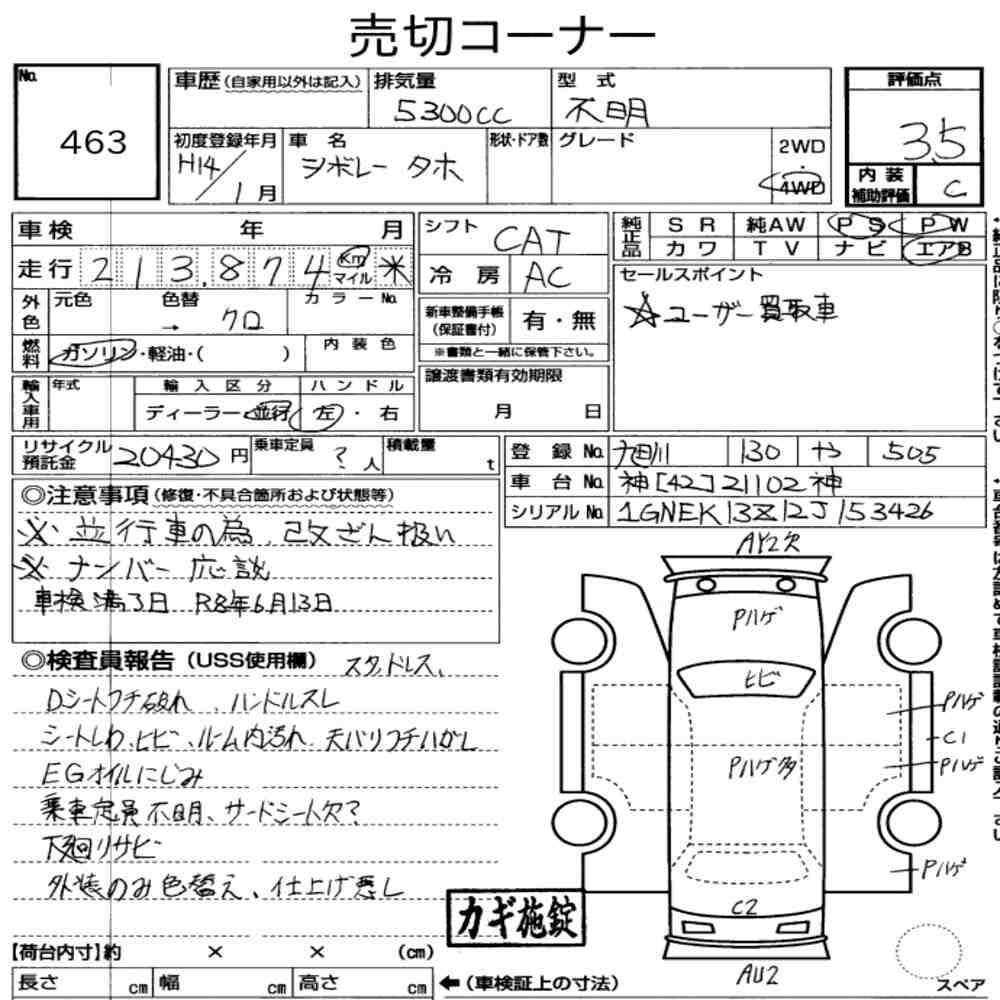 売切コーナー
No. 463
車歴(自家用以外は記入) 排気量 5300cc 型式 不明
初度登録年月 H14/1月 車名 シボレー タホ 形状・ドア数 グレード 2WD・4WD
評価点 3.5
内装補助評価 C
車検 年 月
走行 213,874 Km マイル ※
シフト CAT
冷房 AC
純正品 SR 純AW PS PW
カワ TV ナビ エアB
セールスポイント
☆ユーザー買取車
外色 元色 色替 → クロ カラーNo.
燃料 ガソリン・軽油・( ) 内装色
新車整備手帳(保証書付) 有・無
※書類と一緒に保管下さい。
輸入車用 年式 輸入区分 ハンドル
ディーラー・並行 左・右
譲渡書類有効期限
月 日
リサイクル預託金 20430円 乗車定員 ?人 積載量 t
登録No. 旭川 130 や 505
車台No. 神[42]21102神
シリアルNo. 1GNEK13Z12J153426
◎注意事項(修復・不具合箇所および状態等)
※ 並行車の為、改ざん扱い
※ ナンバー 応談
車検満了日 R8年6月13日
◎検査員報告(USS使用欄) スタッドレス、
Dシートフチ破れ、ハンドルスレ
シートしわ、ヒビ、ルーム内汚れ、天バリフチハガレ
EGオイルにじみ
乗車定員不明、サードシート欠?
下廻りサビ
外装のみ色替え、仕上げ悪し
AY2欠
Pハゲ
ヒビ
Pハゲ多
Pハゲ
C1
Pハゲ
Pハゲ
C2
AU2
カギ施錠
【荷台内寸】約 × × (cm)
長さ cm 幅 cm 高さ cm
←(車検証上の寸法)
スペア